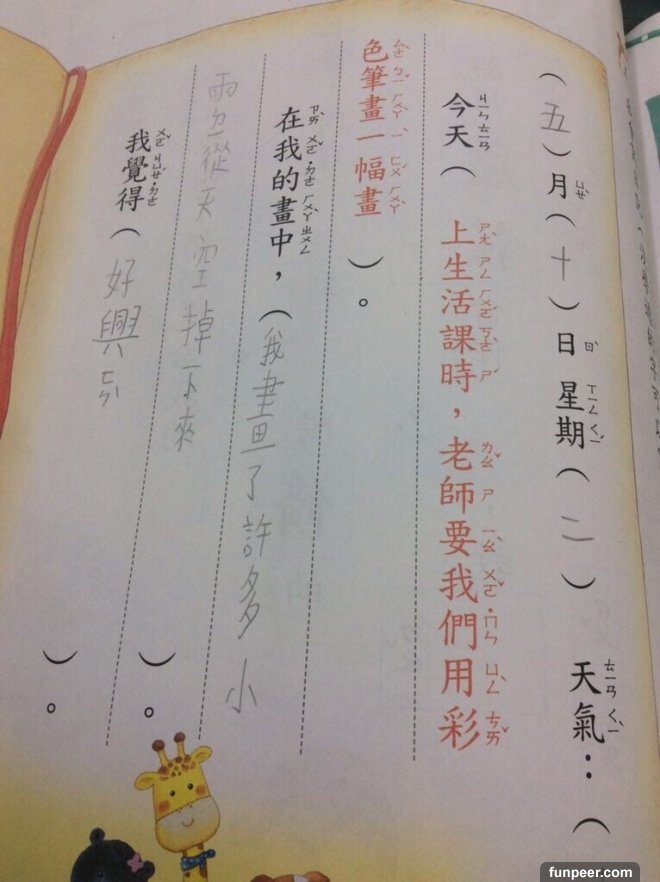 (五)月(十)日星期(二)天氣：(
今天(上生活課時，老師要我們用彩
色筆畫一幅畫)。
在我的畫中，(我畫了許多小
雨從天空掉下來)。
我覺得(好興ㄈㄣˋ)。
funpeer.com